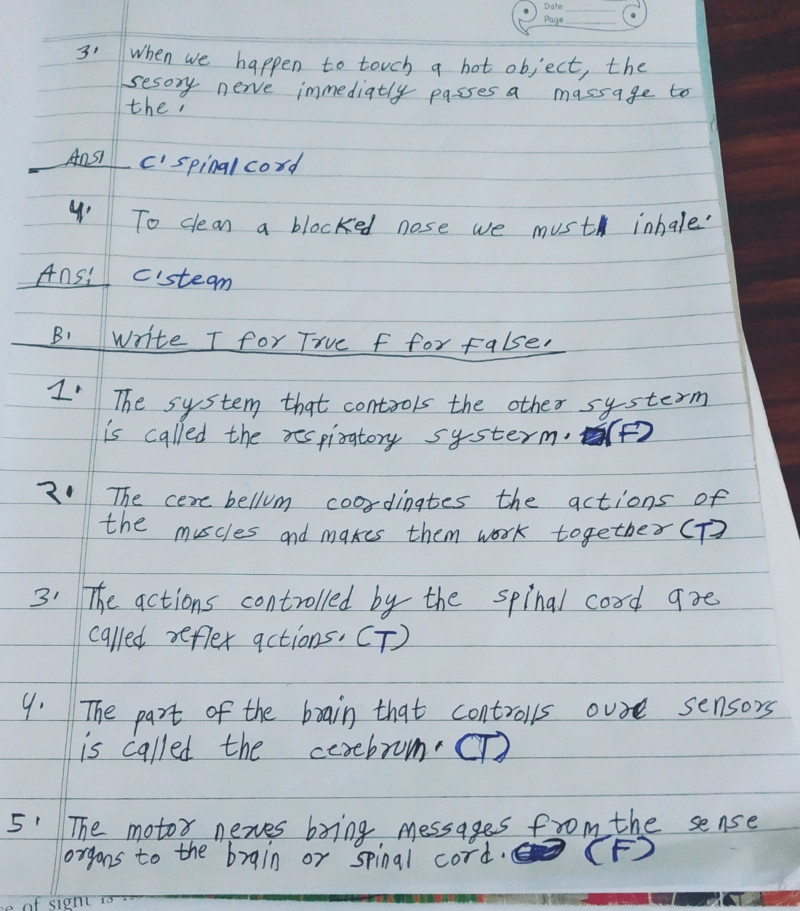 Date
Page
3. When we happen to touch a hot object, the
sesory nerve immediatly passes a massage to
the.
Ans! C' spinal cord
4. To clean a blocked nose we must inhale.
Ans! C' steam
B. Write T for True F for False.
1. The system that controls the other systerm
is called the respiratory systerm. (F)
2. The cere bellum coordinates the actions of
the muscles and makes them work together (T)
3. The actions controlled by the spinal cord are
called reflex actions. (T)
4. The part of the brain that controlls our sensors
is called the cerebrum. (T)
5. The motor nerves bring messages from the sense
organs to the brain or spinal cord. (F)
of sight is